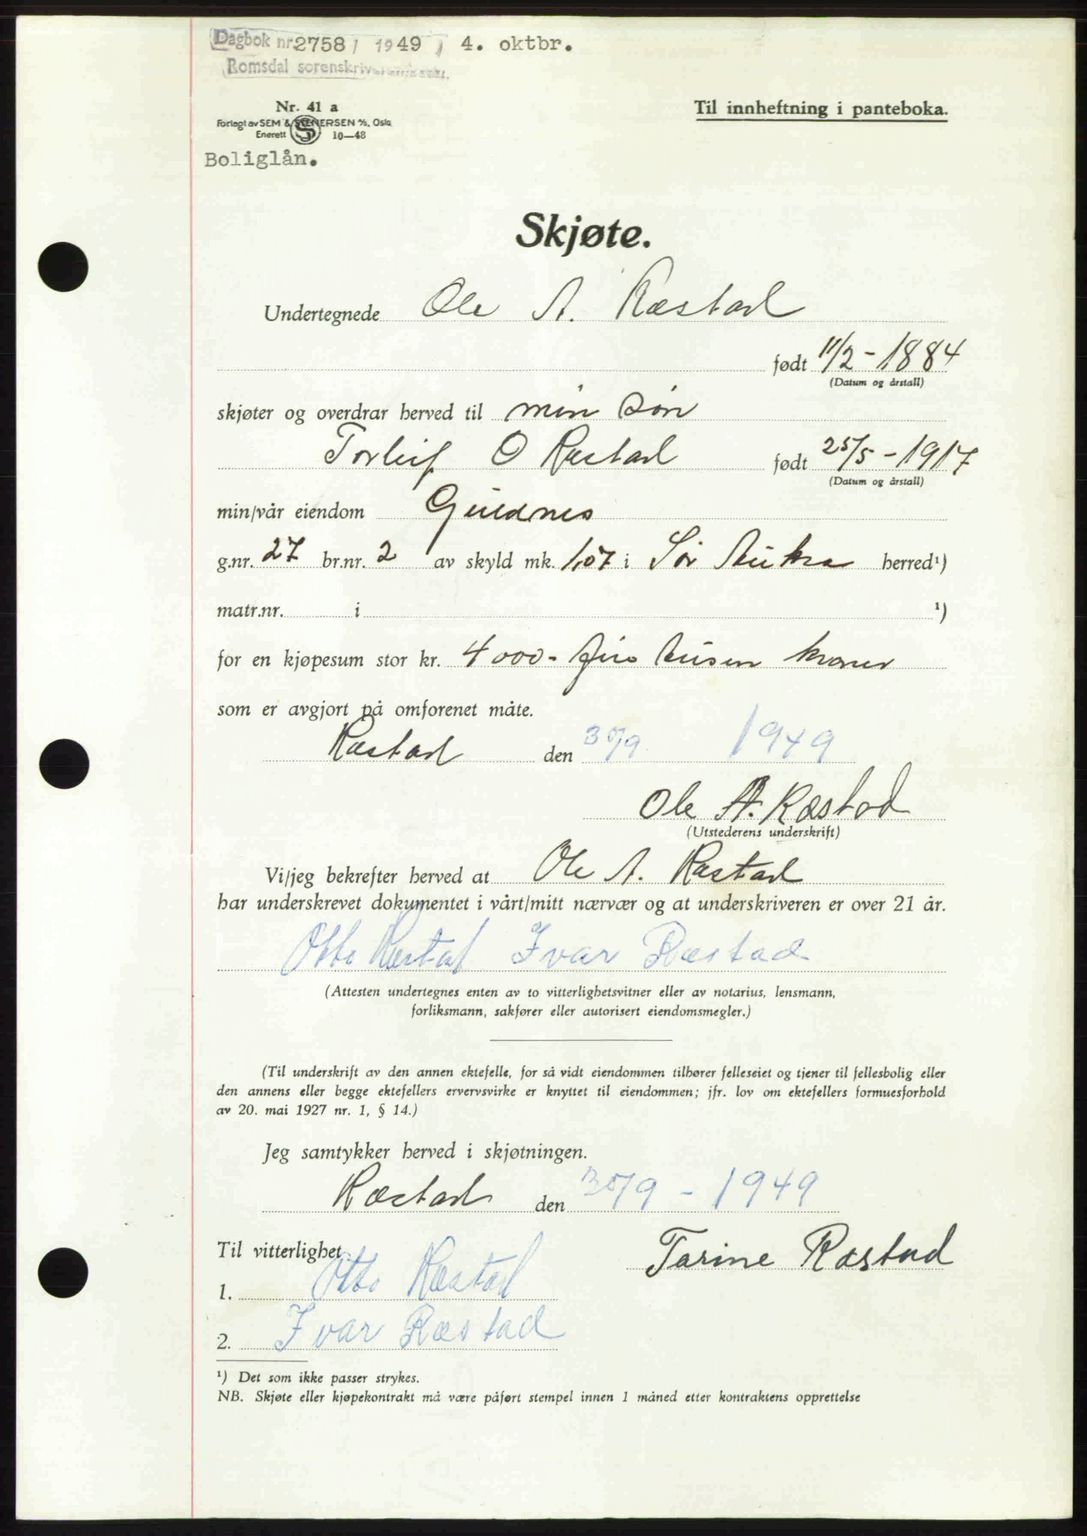 Dagbok nr. 2758 / 1949 / 4. oktbr.
Romsdal sorenskriverembete.
Nr. 41 a
Forlagt av SEM & STENERSEN A/S, Oslo
Enerett 10—48
Til innheftning i panteboka.
Boliglån.
Skjøte.
Undertegnede Ole A. Ræstad
født 11/2 - 1884
(Datum og årstall)
skjøter og overdrar herved til min søn
Torleif O Ræstad født 25/5 - 1917
(Datum og årstall)
min/vår eiendom Guldnes
g.nr. 27 br.nr. 2 av skyld mk. 1,07 i Sør Aukra herred¹)
matr.nr. i ¹)
for en kjøpesum stor kr. 4000 - fire tusen kroner
som er avgjort på omforenet måte.
Ræstad den 30/9 1949
Ole A. Ræstad
(Utstederens underskrift)
Vi/jeg bekrefter herved at Ole A. Ræstad
har underskrevet dokumentet i vårt/mitt nærvær og at underskriveren er over 21 år.
Otto Ræstad Ivar Ræstad
(Attesten undertegnes enten av to vitterlighetsvitner eller av notarius, lensmann,
forliksmann, sakfører eller autorisert eiendomsmegler.)
(Til underskrift av den annen ektefelle, for så vidt eiendommen tilhører felleseiet og tjener til fellesbolig eller
den annens eller begge ektefellers ervervsvirke er knyttet til eiendommen; jfr. lov om ektefellers formuesforhold
av 20. mai 1927 nr. 1, § 14.)
Jeg samtykker herved i skjøtningen.
Ræstad den 30/9 - 1949
Til vitterlighet Tarine Ræstad
1. Otto Ræstad
2. Ivar Ræstad
¹) Det som ikke passer strykes.
NB. Skjøte eller kjøpekontrakt må være påført stempel innen 1 måned etter kontraktens opprettelse